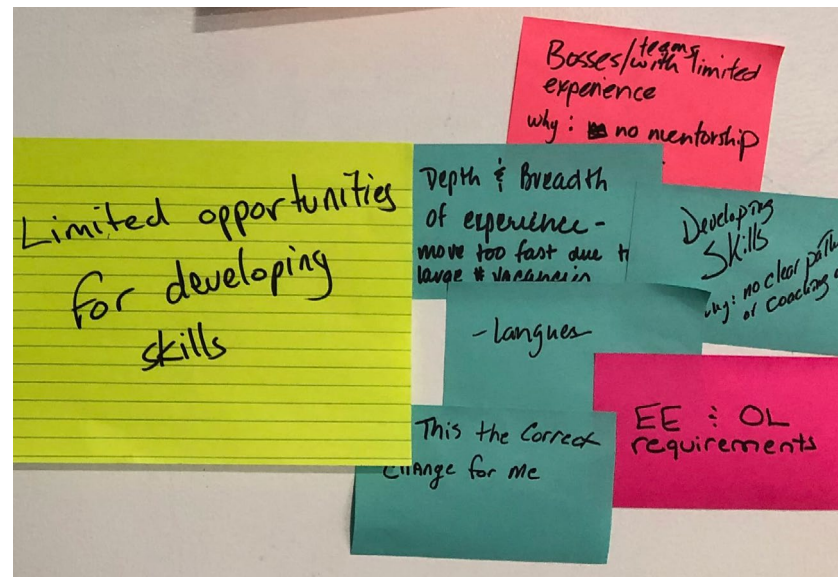 Limited opportunities
for developing
skills
Bosses/teams with limited
experience
why: no mentorship
Depth & Breadth
of experience -
move too fast due
large # vacancies
Developing
Skills
why: no clear
or coaching
- langues
EE & OL
requirements
This the Correct
change for me